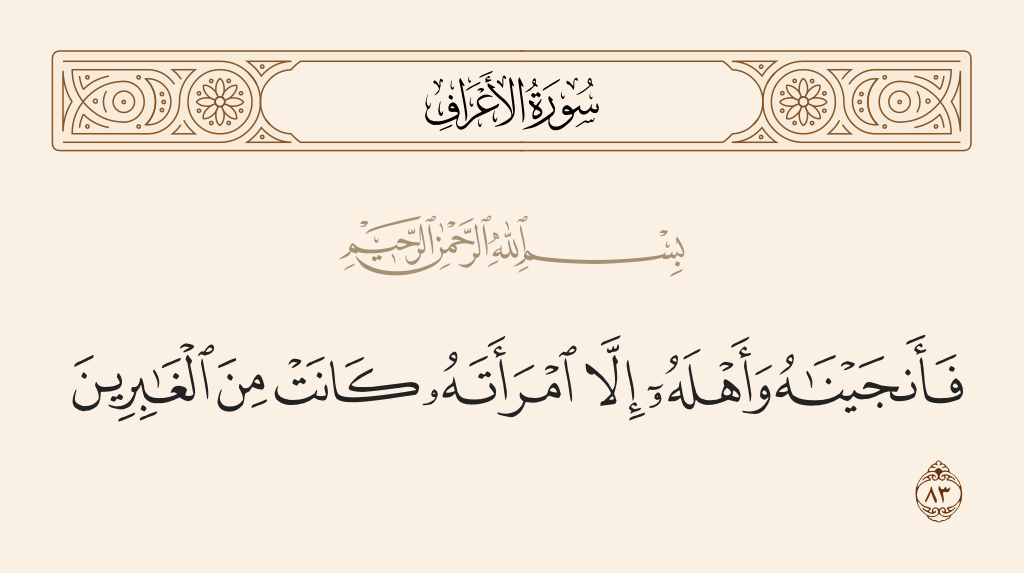 سُورَةُ الأَعْرَافِ
بِسْمِ ٱللَّهِ ٱلرَّحْمَٰنِ ٱلرَّحِيمِ
فَأَنجَيْنَـٰهُ وَأَهْلَهُۥٓ إِلَّا ٱمْرَأَتَهُۥ كَانَتْ مِنَ ٱلْغَـٰبِرِينَ
٨٣